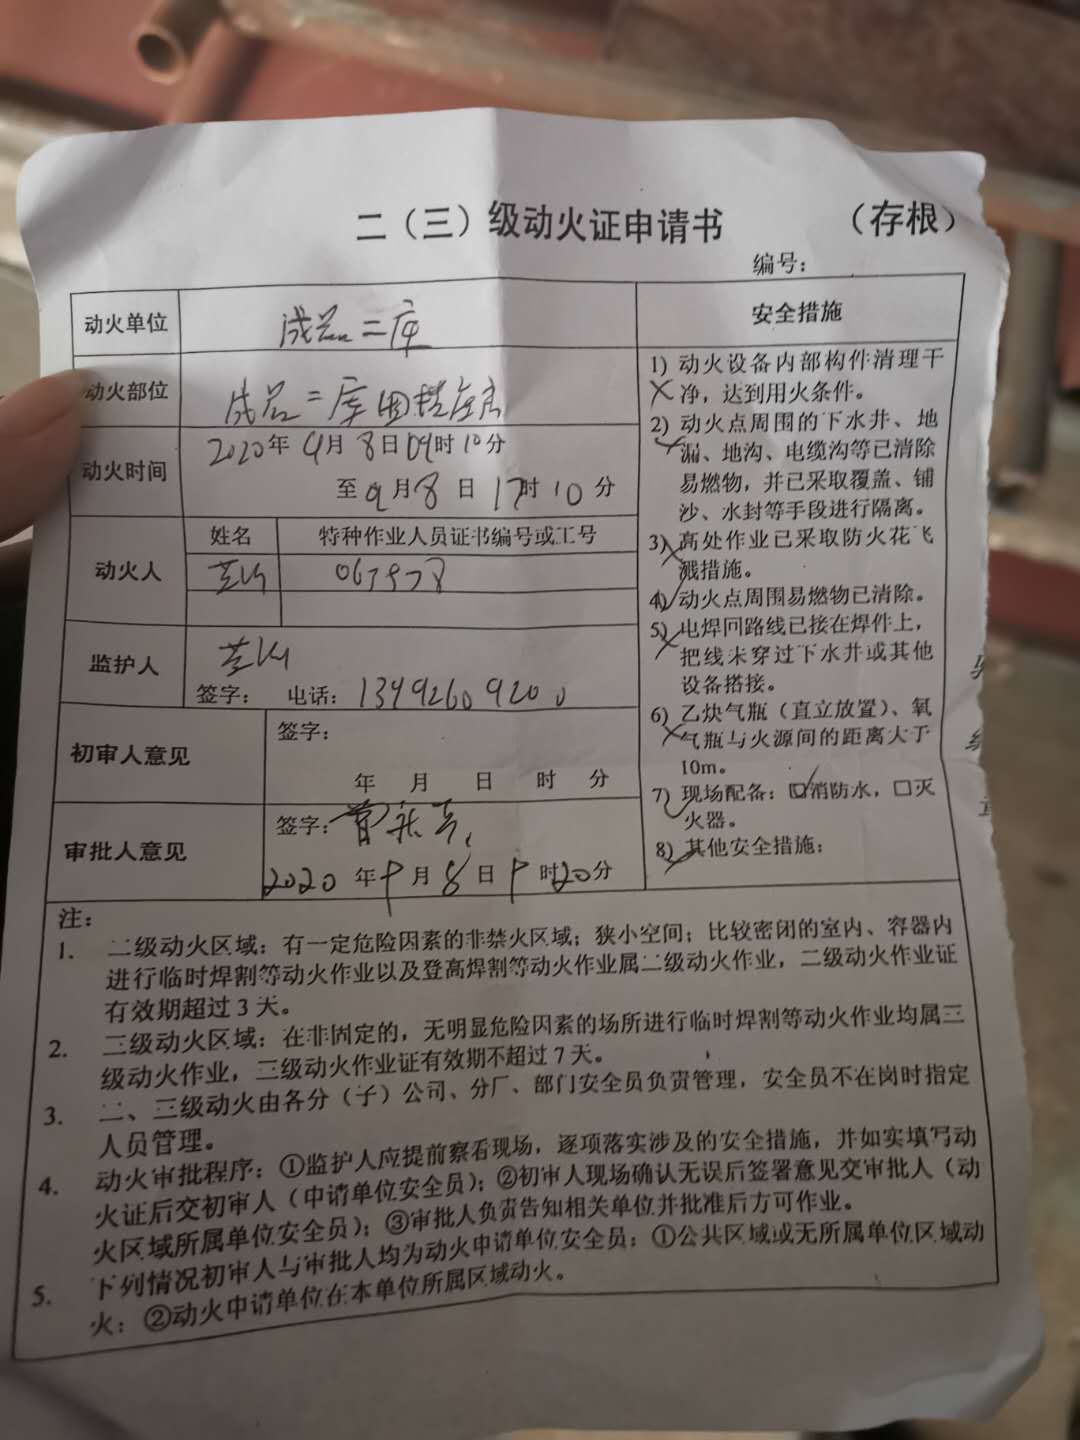 二（三）级动火证申请书 （存根）
编号：
动火单位 成品二库
动火部位 成品二库
动火时间 2020年9月8日09时10分
至9月8日17时10分
动火人 姓名 特种作业人员证书编号或工号
监护人
签字： 电话：
初审人意见 签字：
年 月 日 时 分
审批人意见 签字：
2020年9月8日9时20分
安全措施
1）动火设备内部构件清理干
净，达到用火条件。
2）动火点周围的下水井、地
漏、地沟、电缆沟等已清除
易燃物，并已采取覆盖、铺
沙、水封等手段进行隔离。
3）高处作业已采取防火花飞
溅措施。
4）动火点周围易燃物已清除。
5）电焊回路线已接在焊件上，
把线未穿过下水井或其他
设备搭接。
6）乙炔气瓶（直立放置）、氧
气瓶与火源间的距离大于
10m。
7）现场配备：☑消防水，□灭
火器。
8）其他安全措施：
注：
1. 二级动火区域：有一定危险因素的非禁火区域；狭小空间；比较密闭的室内、容器内
进行临时焊割等动火作业以及登高焊割等动火作业属二级动火作业，二级动火作业证
有效期超过3天。
2. 三级动火区域：在非固定的，无明显危险因素的场所进行临时焊割等动火作业均属三
级动火作业，三级动火作业证有效期不超过7天。
3. 二、三级动火由各分（子）公司、分厂、部门安全员负责管理，安全员不在岗时指定
人员管理。
4. 动火审批程序：①监护人应提前察看现场，逐项落实涉及的安全措施，并如实填写动
火证后交初审人（申请单位安全员）；②初审人现场确认无误后签署意见交审批人（动
火区域所属单位安全员）；③审批人负责告知相关单位并批准后方可作业。
5. 下列情况初审人与审批人均为动火申请单位安全员：①公共区域或无所属单位区域动
火；②动火申请单位在本单位所属区域动火。